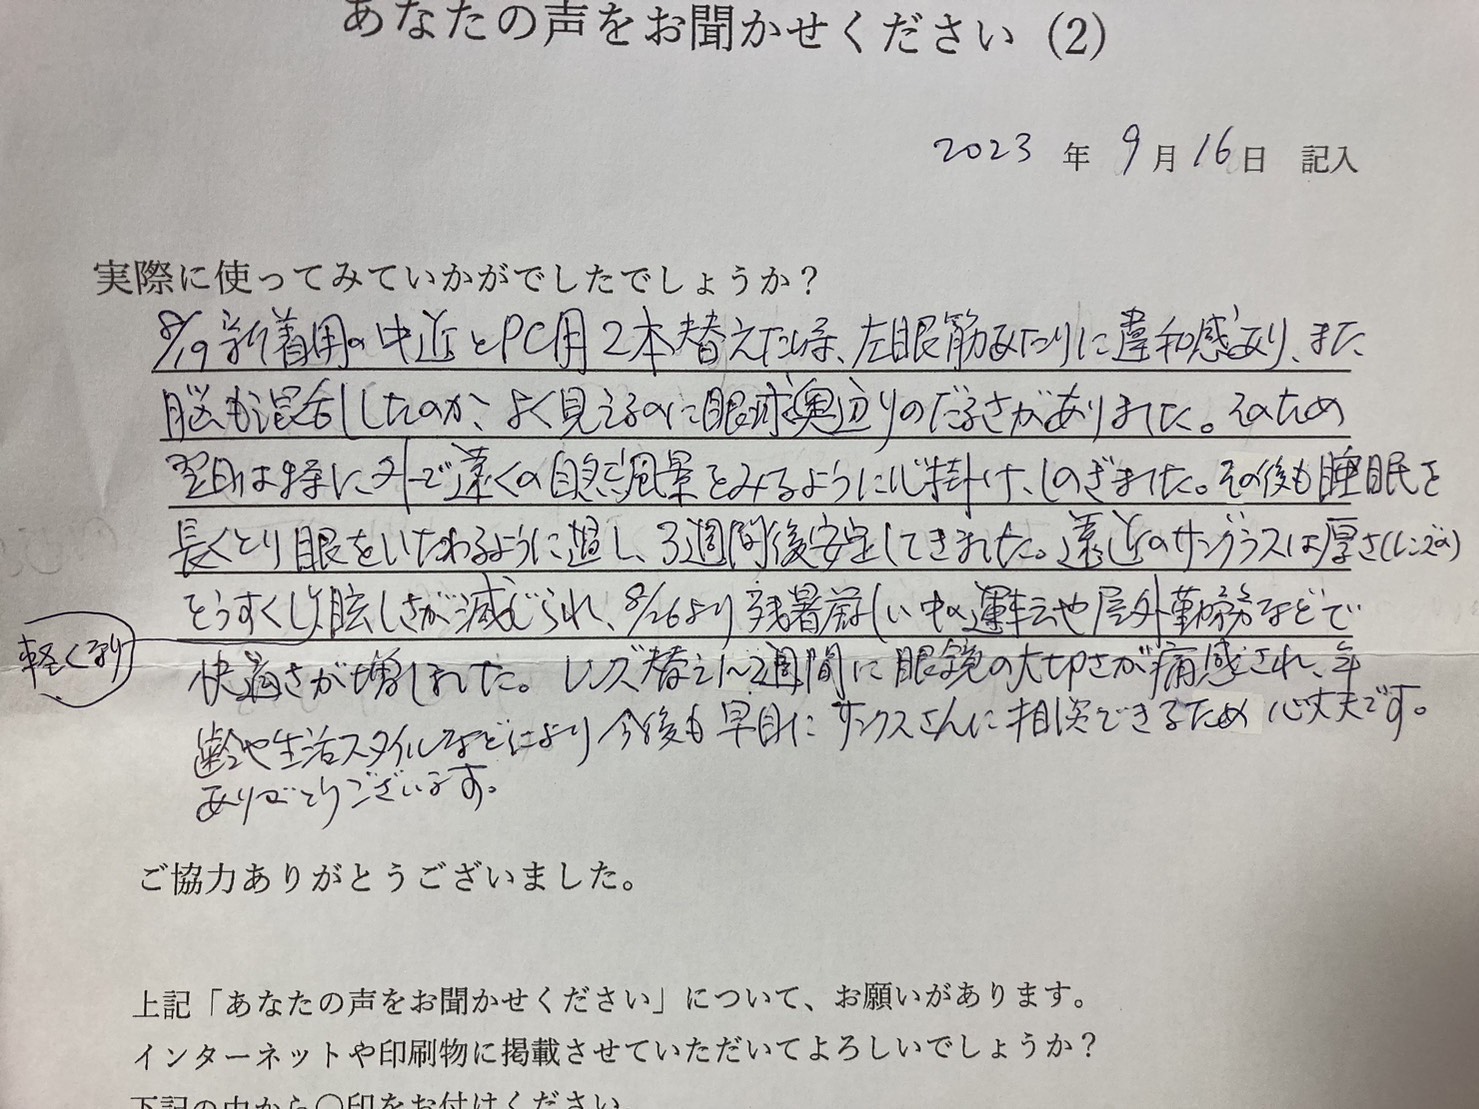 あなたの声をお聞かせください（2）
2023 年 9 月 16 日 記入
実際に使ってみていかがでしたでしょうか？
8/19 新着用の中近とPC用2本替えた時、左眼筋あたりに違和感あり、また
脳も混乱したのか、よく見えるのに眼球奥辺りのだるさがありました。そのため
翌日は特に外で遠くの自然風景をみるように心掛け、しのぎました。その後も睡眠を
長くとり眼をいたわるように過し、3週間後安定してきました。遠近のサングラスは厚さ(レンズの)
をうすくし眩しさが減じられ、8/26より残暑厳しい中の運転や屋外勤務などで
軽くなり
快適さが増しました。レンズ替え1〜2週間に眼鏡の大切さが痛感され、年
齢や生活スタイルなどにより今後も早目にサンクスさんに相談できるため心丈夫です。
ありがとうございます。
ご協力ありがとうございました。
上記「あなたの声をお聞かせください」について、お願いがあります。
インターネットや印刷物に掲載させていただいてよろしいでしょうか？
下記の中から〇印をお付けください